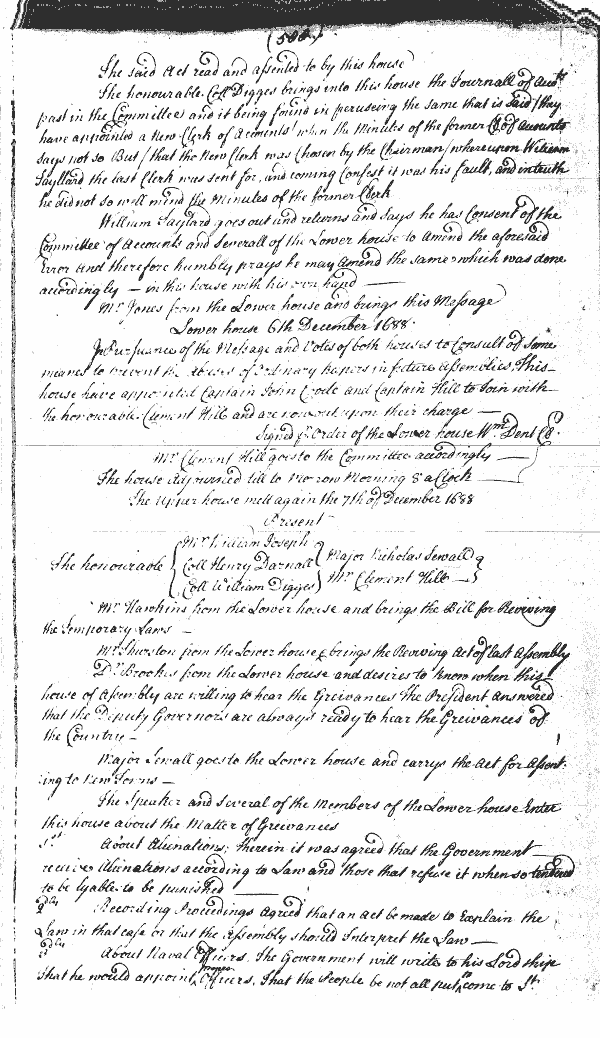 The said Act read and assented to by this house
The honourable Coll Digges brings into this house the Journall of Acots
past in the Committee and it being found in peruseing the same that is said/they
have appointed a New Clerk of Accounts/when the Minutes of the former of Accounts
says not so But/that the New Clerk was Chosen by the Chairman/whereupon William
Taylard the last Clerk was sent for, and coming Confest it was his fault, and in truth
he did not so well mind the Minutes of the former Clerk
William Taylard goes out and returns and says he has Consent of the
Committee of Accounts and severall of the Lower house to Amend the aforesaid
Error and therefore humbly prays he may Amend the same which was done
accordingly — in this house with his own hand —
Mr Jones from the Lower house and brings this Message
Lower house 6th December 1688.
In Pursuance of the Message and Votes of both houses to Consult of some
means to prevent the Abuses of Ordinary keepers in future Assemblies. This
house have appointed Captain John Coode and Captain Hill to Join with
the honourable Clement Hill and are now out upon their charge —
Signed pr Order of the Lower house Wm Dent Clk.
Mr Clement Hill goes to the Committee accordingly —
The house Adjourned till to Morrow Morning 8 a Clock —
The Upper house mett again the 7th of December 1688
Present
The honourable { Mr William Joseph
Coll Henry Darnall
Coll William Digges } Major Nicholas Sewall
Mr Clement Hill — }
Mr Hawkins from the Lower house and brings the Bill for Reviving
the Temporary Laws —
Mr Thurston from the Lower house & brings the Reviving Act of last Assembly
Dr Brookes from the Lower house and desires to know when this
house of Assembly are willing to hear the Greivances The President answered
that the Deputy Governors are always ready to hear the Greivances of
the Country —
Major Sewall goes to the Lower house and carrys the Act for Assent:
:ing to New Towns —
The Speaker and several of the Members of the Lower house Enter
this house about the Matter of Greivances
1st About Alienations; therein it was agreed that the Government
receive Alienations according to Law and those that refuse it when so tendered
to be lyable to be punished —
2dly Recording Proceedings Agreed that an act be made to Explain the
Law in that case or that the Assembly should Interpret the Law —
3dly About Naval Officers. The Government will write to his Lordship
that he would appoint more Officers. That the People be not all put to come to St.